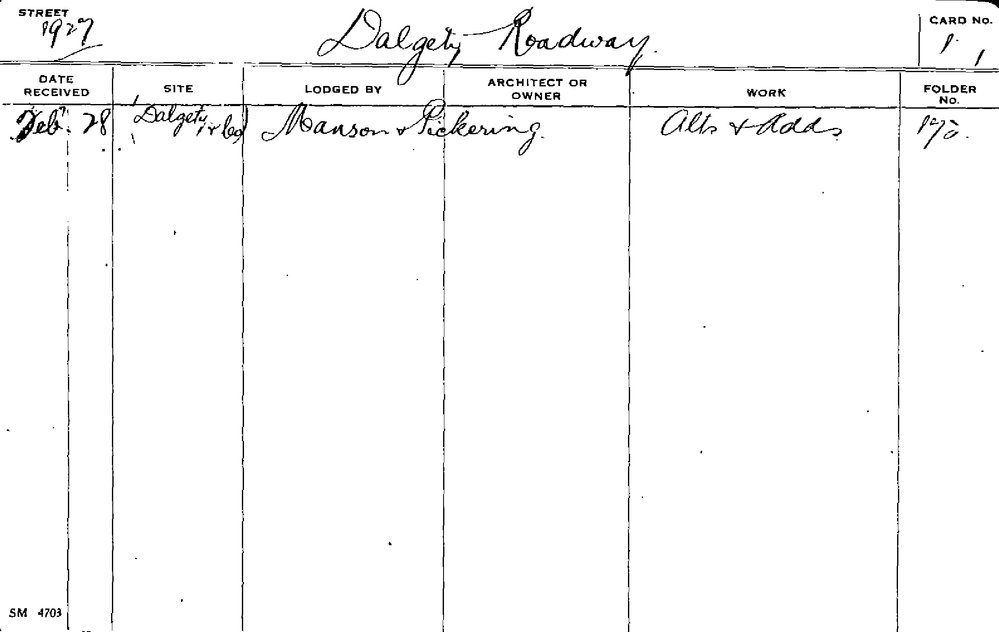 STREET
1927 Dalgety Roadway.
CARD No.
1. 1
DATE RECEIVED SITE LODGED BY ARCHITECT OR OWNER WORK FOLDER No.
Feb. 28 Dalgety & Co Manson & Pickering. Alts & Adds
SM 4703